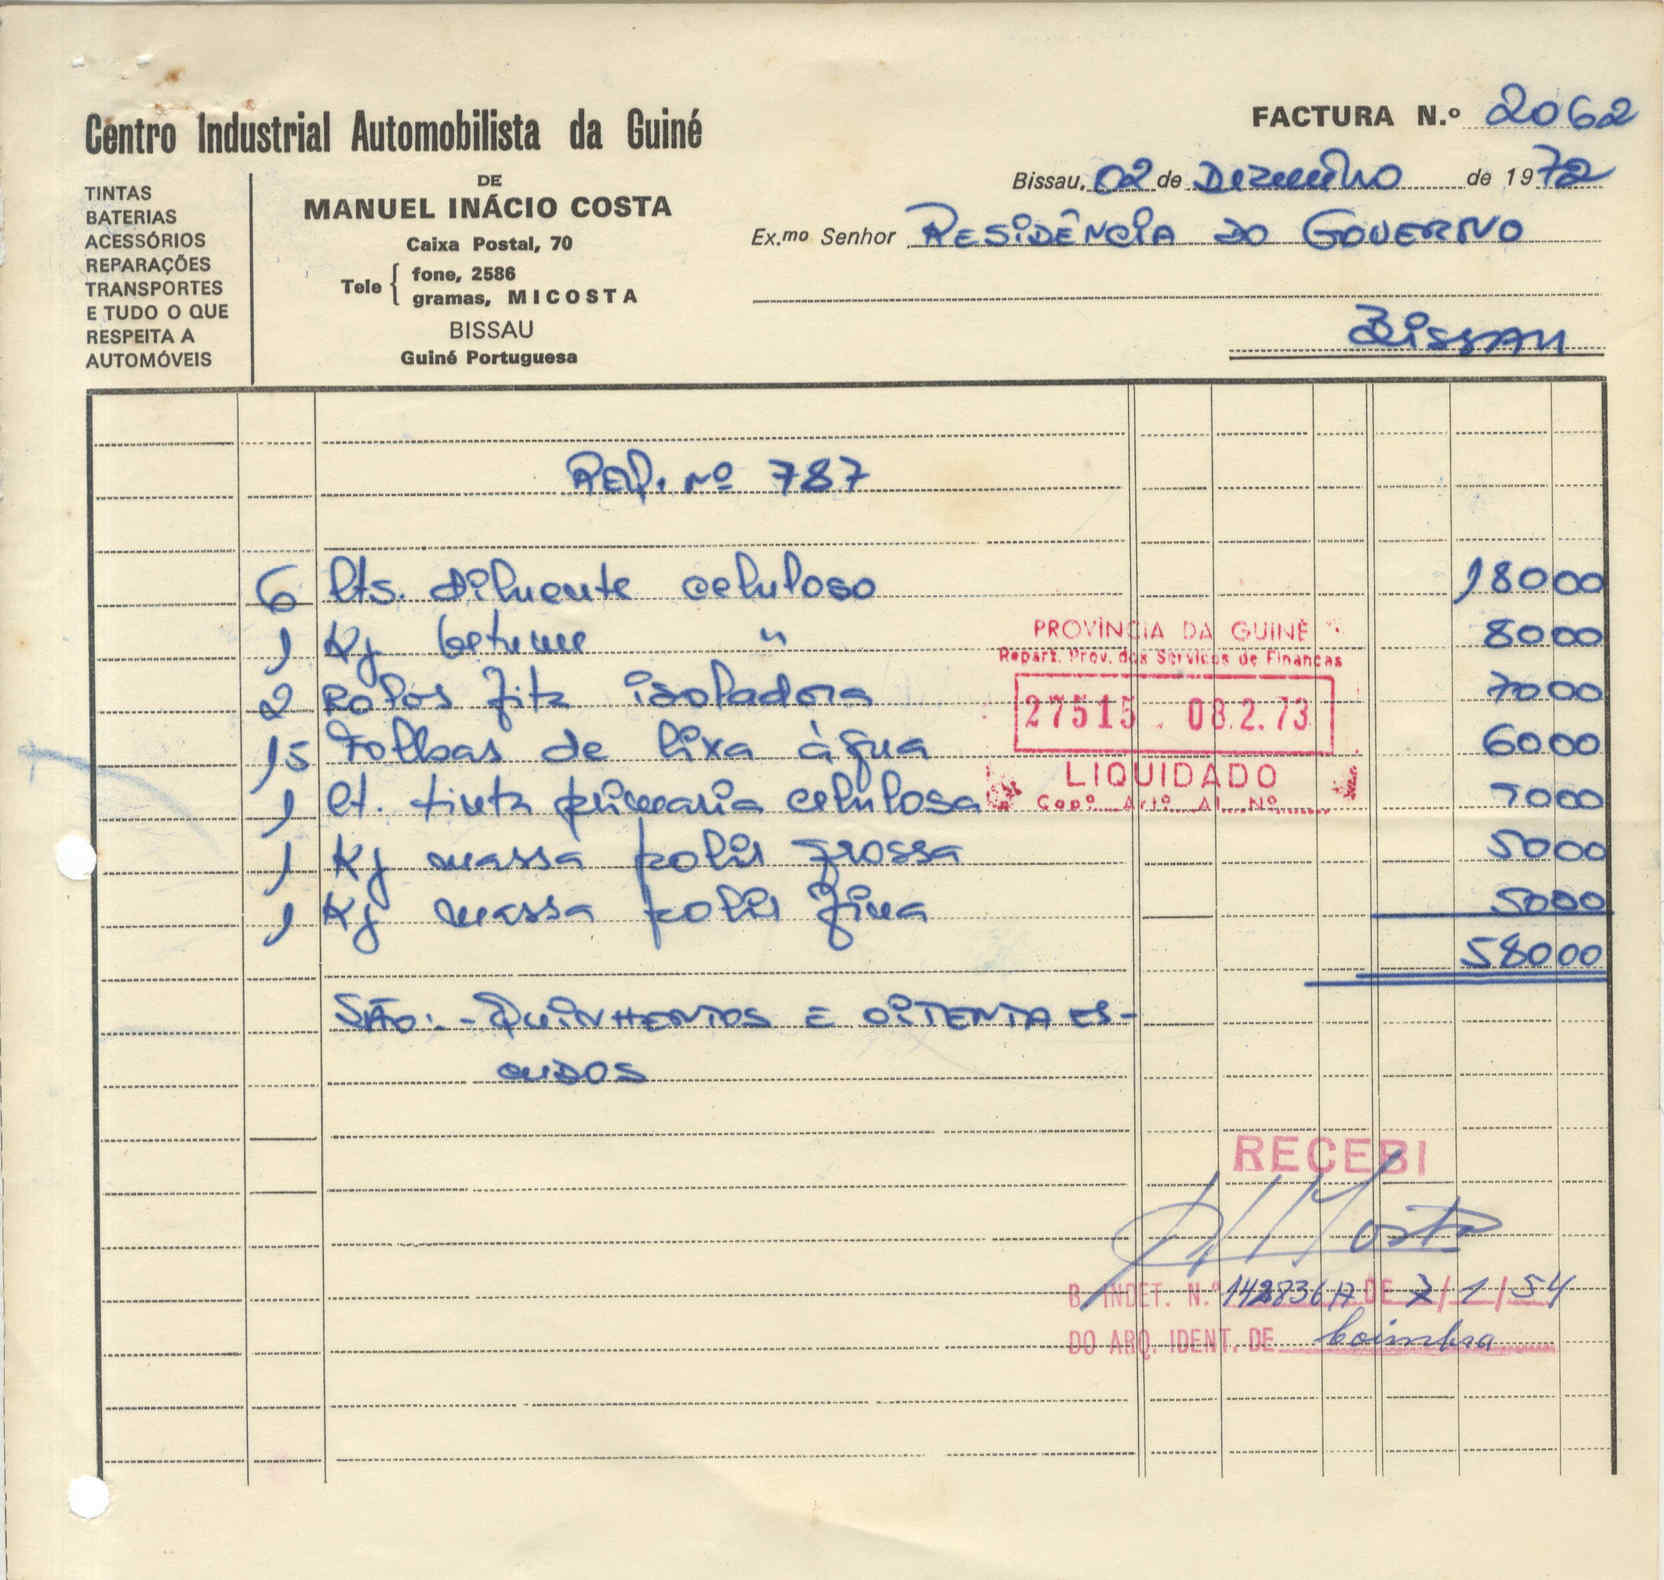 Centro Industrial Automobilista da Guiné
FACTURA N.º 2062
TINTAS
BATERIAS
ACESSÓRIOS
REPARAÇÕES
TRANSPORTES
E TUDO O QUE
RESPEITA A
AUTOMÓVEIS
DE
MANUEL INÁCIO COSTA
Caixa Postal, 70
Tele { fone, 2586
gramas, MICOSTA
BISSAU
Guiné Portuguesa
Bissau, 02 de Dezembro de 1972
Ex.mo Senhor RESIDÊNCIA DO GOVERNO
BISSAU
REQ. Nº 787
6 lts. diluente celuloso 180 00
1 Kg betume " 80 00
2 Rolos fita isoladora 70 00
15 Folhas de lixa água 60 00
1 lt. tinta primaria celulosa 70 00
1 Kg massa polir grossa 50 00
1 Kg massa polir fina 50 00
580 00
SÃO:- QUINHENTOS E OITENTA ES-
CUDOS
PROVÍNCIA DA GUINÉ
Repart. Prov. dos Serviços de Finanças
27515 . 08.2.73
LIQUIDADO
Cap.º Art.º Al. Nº
RECEBI
B. INDET. N.º 142836 A DE 7/1/54
DO ARQ. IDENT. DE Coimbra